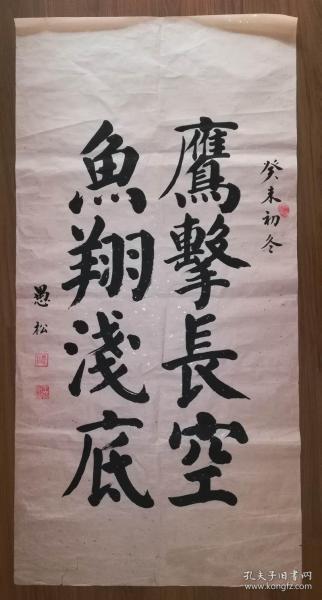 癸未初冬
鷹擊長空
魚翔淺底
愚松
孔夫子旧书网
kongfz.com